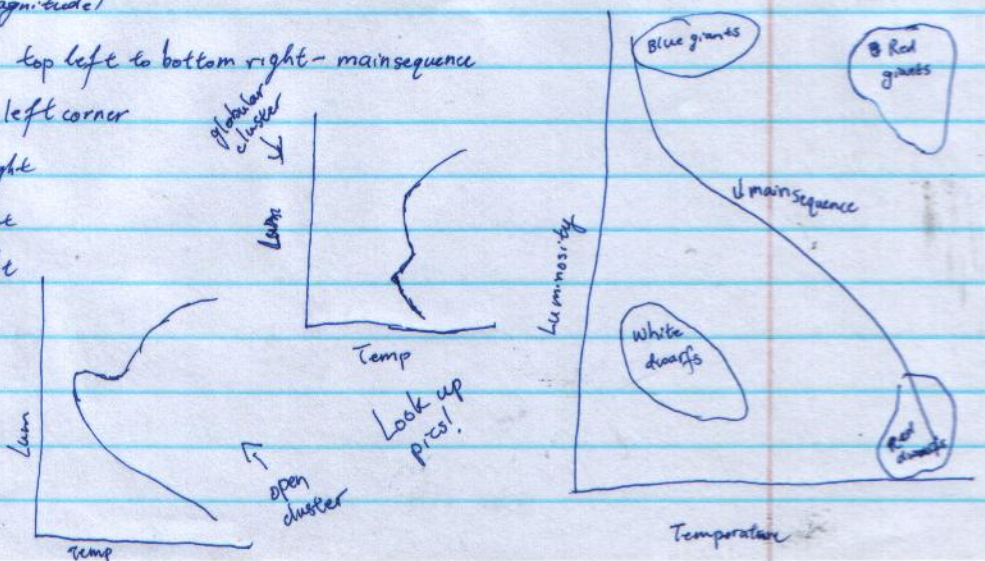 agnitude)
top left to bottom right - mainsequence
left corner
ght
t
t
globular
cluster
Lum
Temp
Lum
Temp
open
cluster
Look up
pics!
Blue giants
Red
giants
mainsequence
Luminosity
White
dwarfs
Red
dwarfs
Temperature